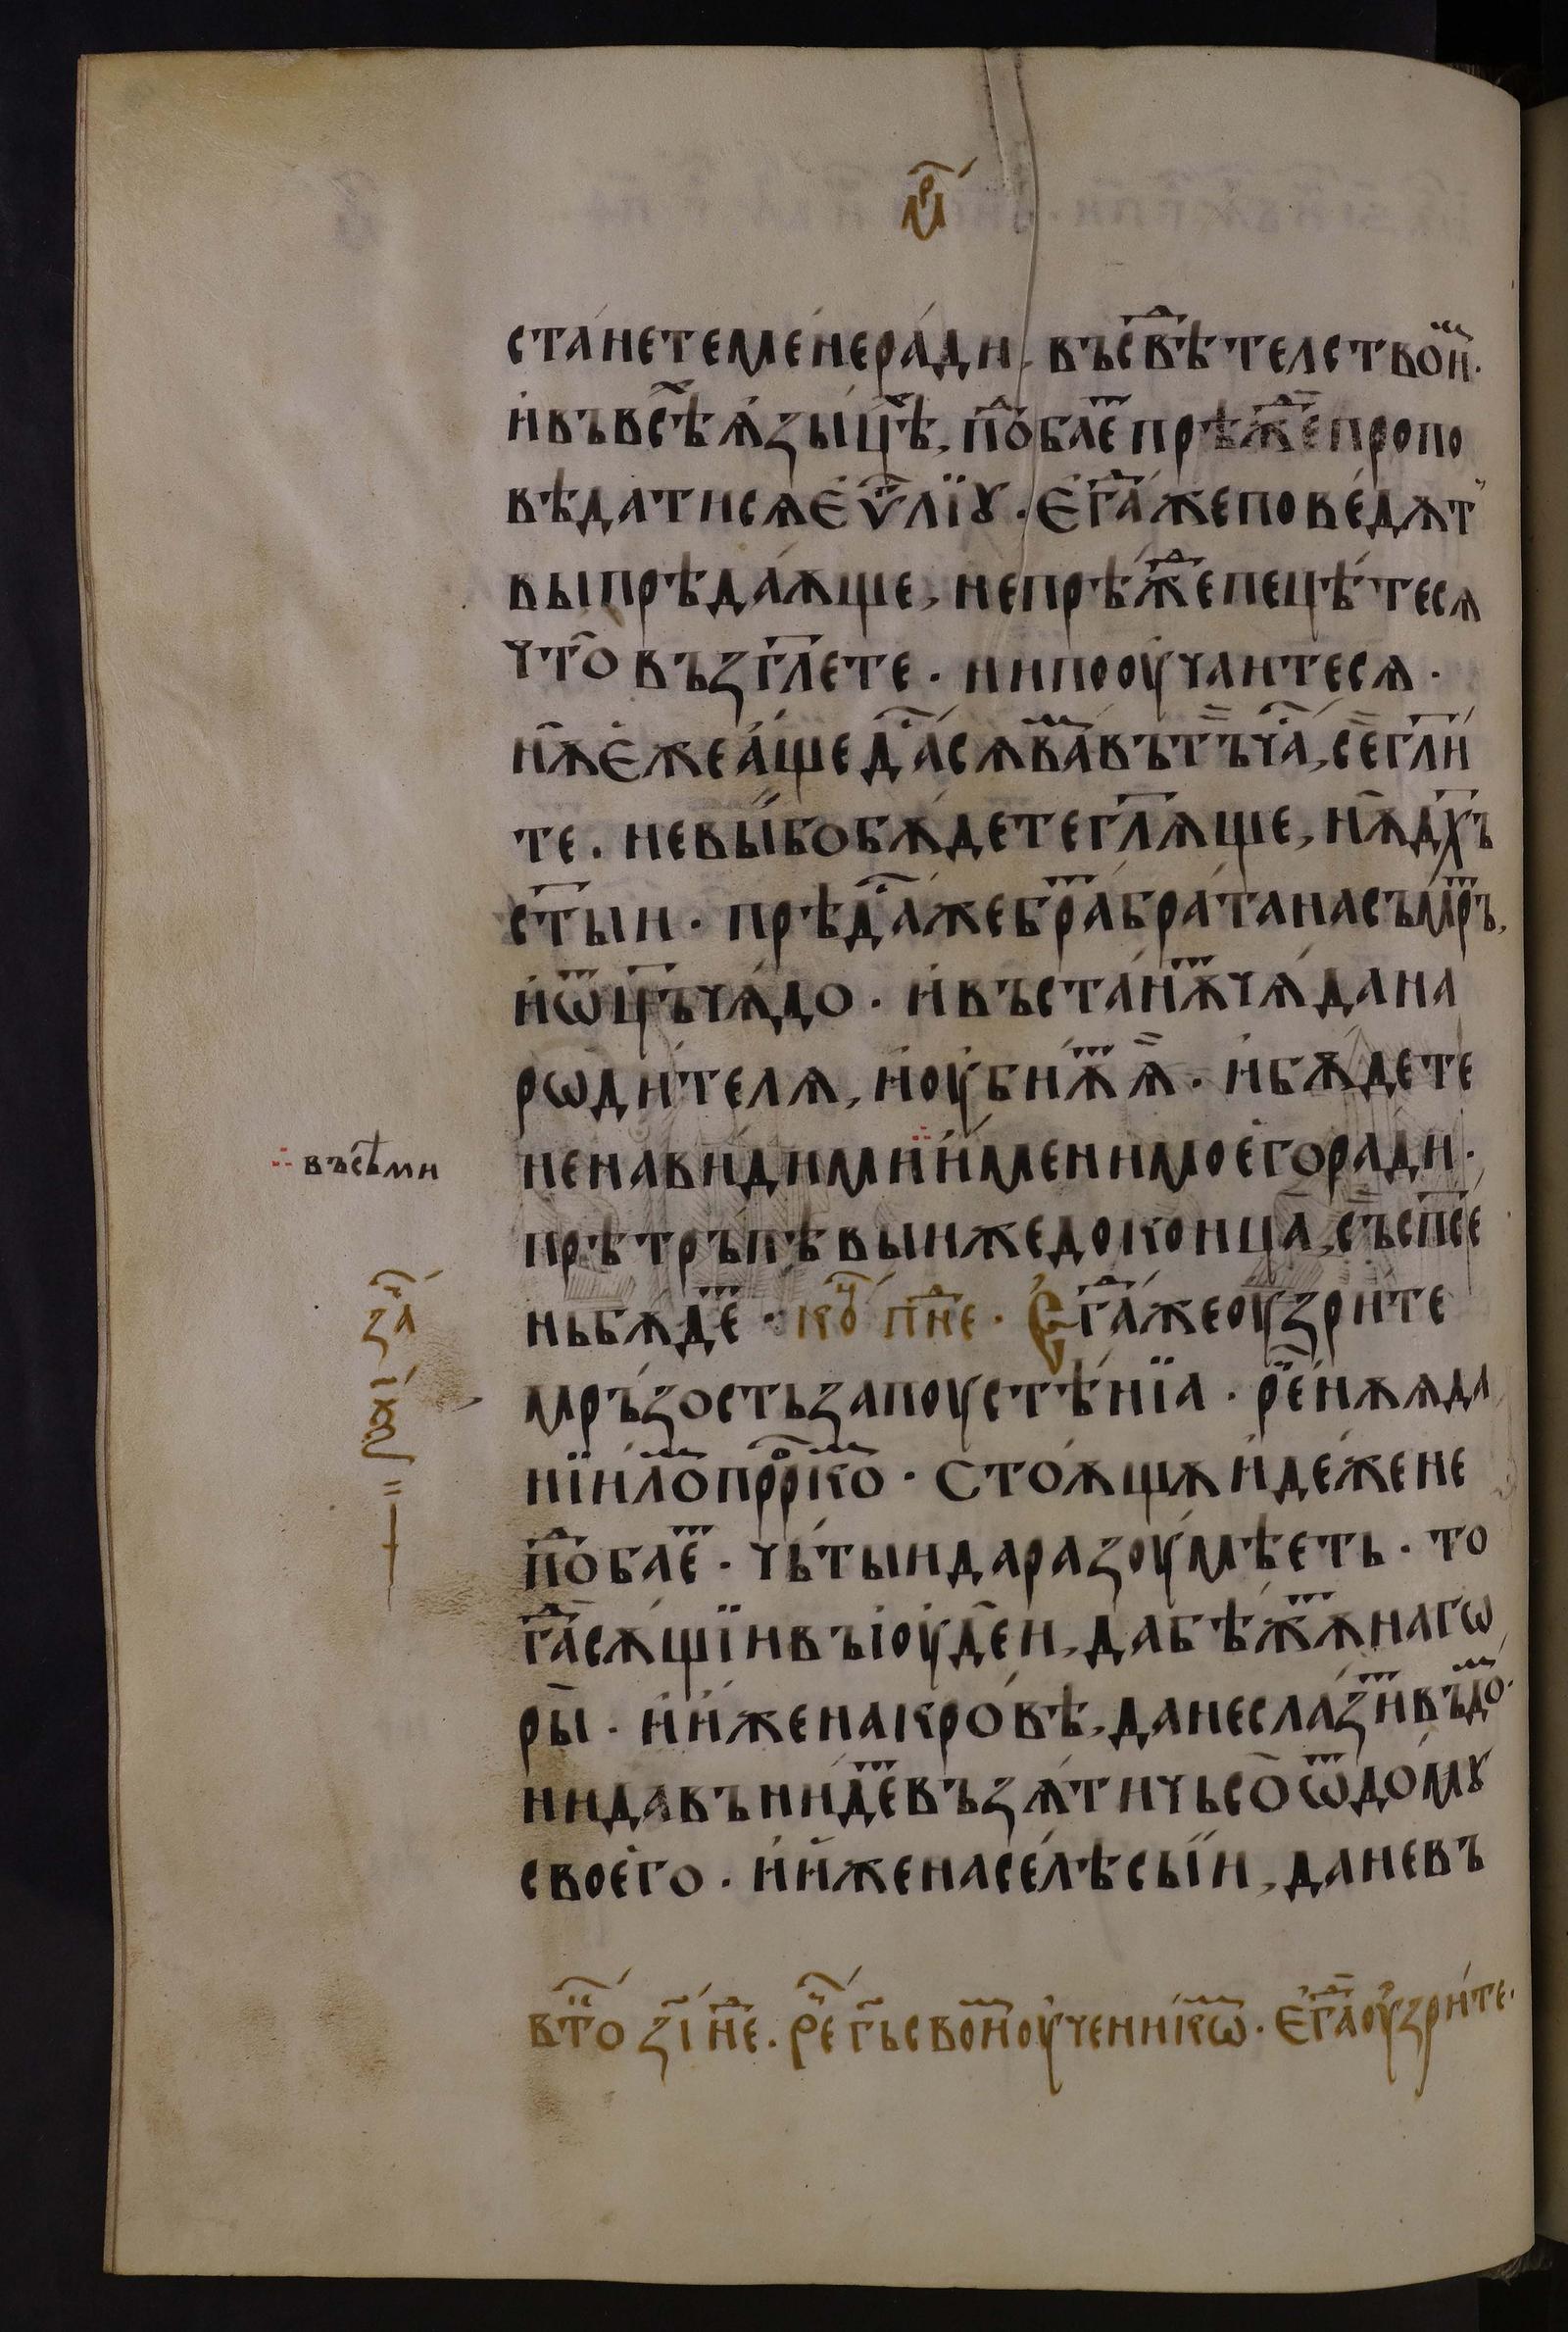 мр҃
ста́нетемене́ра́ди. въсвⷣѣтелствоиⷨ.
и҆въвсѣⷯѧ҆зы́цѣⷯ, пⷣобаеⷮпрѣжⷣепропо
вѣдатисѧе҆ѵⷢ҇лїꙋ. е҆гⷣа́жепове́дѫт
выпрѣдаѫ́ще, непрѣжⷣепецѣ́тесѧ
что҆възгл҃ете. нипооу҆чаитесѧ.
нѫ҆е҆жеа́щедⷭ҇а́сѧваⷨвътъ҆чаⷭ҇, се҆гл҃и
те. невы́бобѫ́детегл҃ѧще, нѫ҆дх҃ъ
ст҃ыи. прѣдⷭ҇а́жебраⷮбра́танасъмръⷮ,
и҆ѿц҃ъчѧ́до. и҆въста́нѫⷮчѧ́дана
рѡди́телѧ, и҆оу҆биѫⷮѧ҆. и҆бѫ́дете
ненави́дими҆и҆мени́мое҆гора́ди.
∴ въсѣ́ми
прѣтръпѣвы́иждедоконца, съсп҃се
ньбѫ́деⷮ. коⷰ҇ пⷩ҇не. Е҆гⷣа́жеоу҆зрите
заⷱ҇ ѯ҃
мръ́зостьзапоустѣ́нїа. рⷱ҇е́нѫѧда
нїи́лоⷨпрⷪ҇ркоⷨ. стоѧ́щѫи҆де́жене
пⷣобаеⷮ. чь́тыидаразоу҆мѣеть. то
гⷣасѫ́щїивъі҆оу҆де҆и, дабѣжѫⷮнагѡ
ры҆. и҆и҆женакро́вѣ, данесла́зиⷮвъдоⷨ.
нидавъни́деⷮвъзѧ́тичьсо҆ѿдо́мꙋ
свое҆го. и҆и҆женасе́лѣсыи҆, даневъ
вⷮто зі҃ нⷣе. рⷱ҇е гь҃своиⷨоу҆ченикѡⷨ. е҆гⷣаоу҆зри́те.